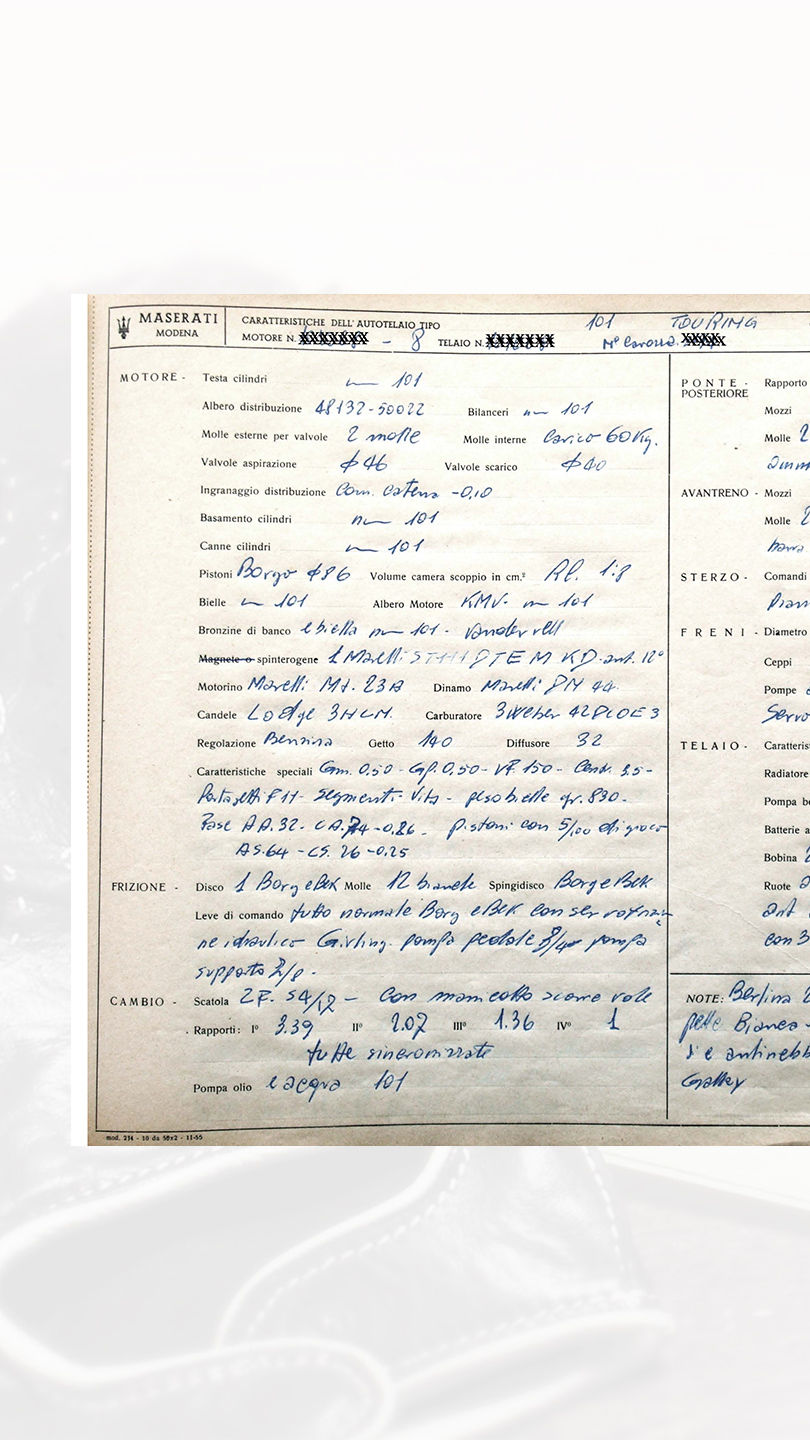 MASERATI
MODENA
CARATTERISTICHE DELL' AUTOTELAIO TIPO 101 TOURING
MOTORE N. XXXXXXX - 8 TELAIO N. XXXXXXX Nº Carrozz. XXXXX
MOTORE - Testa cilindri 101
Albero distribuzione 48132-50022 Bilanceri 101
Molle esterne per valvole 2 molle Molle interne Carico 60 Kg.
Valvole aspirazione ϕ 46 Valvole scarico ϕ 40
Ingranaggio distribuzione Com. catena -0,10
Basamento cilindri 101
Canne cilindri 101
Pistoni Borgo ϕ 86 Volume camera scoppio in cm.³ 1:8
Bielle 101 Albero Motore KMV- 101
Bronzine di banco e biella 101 - Vandervell
Magnete o spinterogeno 1 Marelli ant. 12°
Motorino Marelli Mt. 23A Dinamo Marelli DN 44
Candele Lodge Carburatore 3 Weber 42 DCOE 3
Regolazione Benzina Getto 140 Diffusore 32
Caratteristiche speciali 0,50 - 0,50 - 150 -
F11- Segmenti- - peso bielle gr. 830-
Fase AA.32- -0,26 - pistoni con 5/100 di gioco
AS.64 - CS. 26 -0,25
FRIZIONE - Disco 1 Borg e Bek Molle 12 bianche Spingidisco Borg e Bek
Leve di comando tutto normale Borg e Bek con
ne idraulico Girling - pompa pedale pompa
supporto
CAMBIO - Scatola Z.F. S4/12 - Con manicotto scorrevole
Rapporti: Iº 3.39 IIº 2.07 IIIº 1.36 IVº 1
tutte sincronizzate
Pompa olio e acqua 101
mod. 234 - 10 da 50x2 - 11-55
PONTE - POSTERIORE Rapporto
Mozzi
Molle 2
AVANTRENO - Mozzi
Molle
barra
STERZO - Comandi
FRENI - Diametro
Ceppi
Pompe
Servo
TELAIO - Caratteris
Radiatore
Pompa be
Batterie a
Bobina
Ruote
ant
con 3
NOTE: Berlina 2
pelle Bianca
antinebb